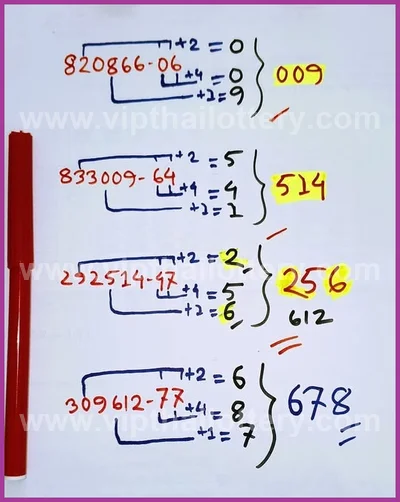 820866-06 +2 = 0
+4 = 0
+1 = 9
009
www.vipthailottery.com
833009-64 +2 = 5
+4 = 4
+1 = 1
514
292514-47 +2 = 2
+4 = 5
+1 = 6
256
www.vipthailottery.com
612
309612-77 +2 = 6
+4 = 8
+1 = 7
678
www.vipthailottery.com